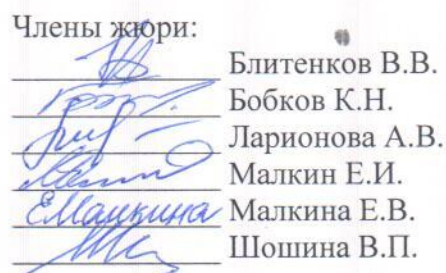 Члены жюри:
Блитенков В.В.
Бобков К.Н.
Ларионова А.В.
Малкин Е.И.
ЕМалкина Малкина Е.В.
Шошина В.П.